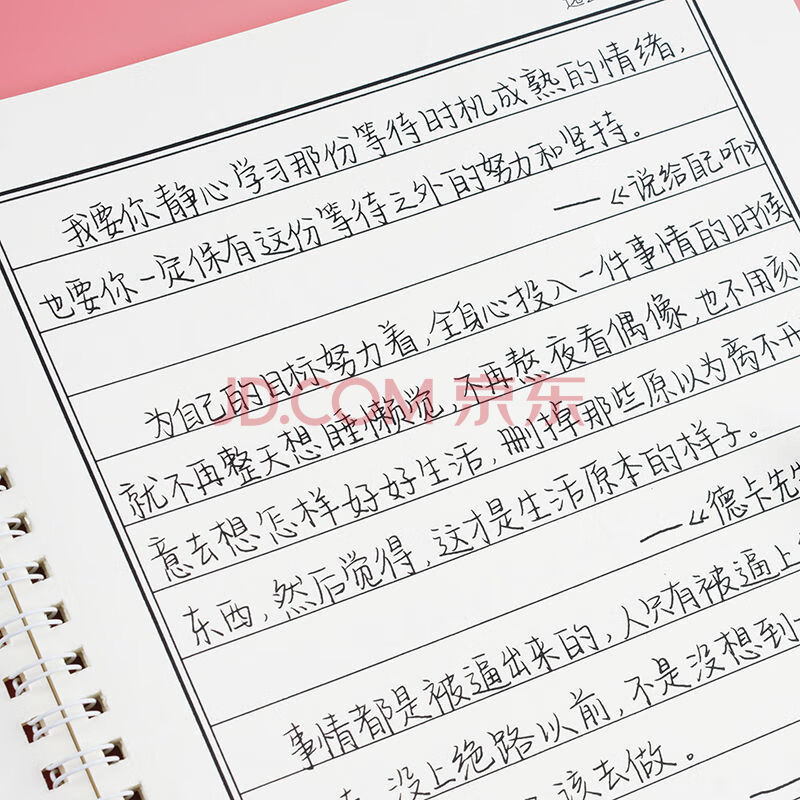 我要你静心学习那份等待时机成熟的情绪，
也要你一定保有这份等待之外的努力和坚持。
——《说给自己听》
为自己的目标努力着，全身心投入一件事情的时候
就不再整天想睡懒觉，不再熬夜看偶像，也不用刻
意去想怎样好好生活，删掉那些原以为离不开
东西，然后觉得，这才是生活原本的样子。
——《德卡先生
事情都是被逼出来的，人只有被逼上
没上绝路以前，不是没想到
该去做。
JD.COM 京东